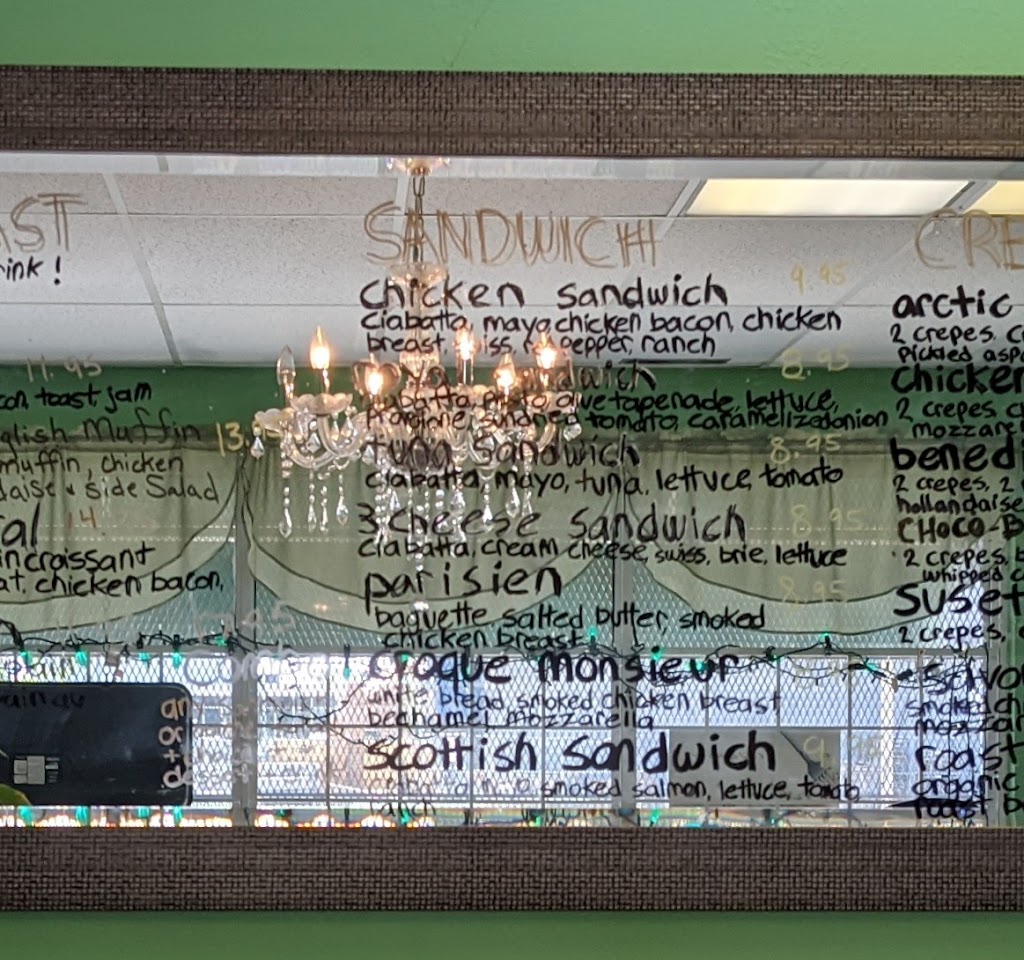 AST
rink !
11.95
con, toast jam
glish Muffin 13.95
muffin, chicken
daise & side Salad
al 14
in croissant
at, chicken bacon,
SANDWICH
chicken sandwich 9.95
ciabatta, mayo, chicken bacon, chicken
breast, swiss, pepper, ranch
sandwich 8.95
ciabatta, olive tapenade, lettuce,
tomato, caramelized onion
tuna sandwich 8.95
ciabatta, mayo, tuna, lettuce, tomato
3 cheese sandwich 8.95
ciabatta, cream cheese, swiss, brie, lettuce
parisien 8.95
baguette salted butter, smoked
chicken breast
croque monsieur
white bread, smoked chicken breast
bechamel mozzarella
scottish sandwich 9.
smoked salmon, lettuce, tomato
ranch
CRE
arctic
2 crepes. c
pickled aspa
chicken
2 crepes c
mozzare
bened
2 crepes, 2
hollandaise
CHOCO-B
2 crepes, b
whipped c
suset
2 crepes,
savo
smoked chi
mozzar
roast
organic
roast b